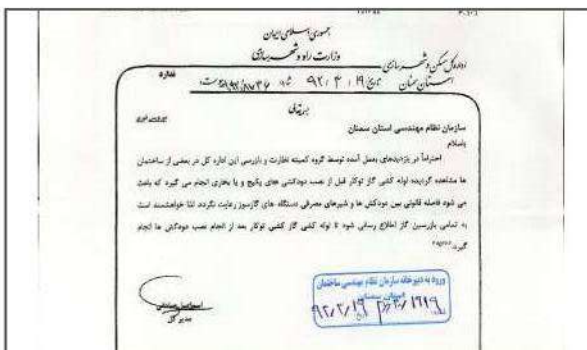 جمهوری اسلامی ایران
وزارت راه و شهرسازی
اداره کل مسکن و شهرسازی
استان سمنان تاریخ ۹۲/۳/۱۹
ندارد
بسمه تعالی
سازمان نظام مهندسی استان سمنان
باسلام
احتراماً در بازدیدهای بعمل آمده توسط گروه کمیته نظارت و بازرسی این اداره کل در بعضی از ساختمان
ها مشاهده گردیده لوله کشی گاز توکار قبل از نصب دودکشی های پکیج و یا بخاری انجام می گیرد که باعث
می شود فاصله قانونی بین دودکش ها و شیرهای مصرفی دستگاه های گازسوز رعایت نگردد لذا خواهشمند است
به تمامی بازرسین گاز اطلاع رسانی شود تا لوله کشی گاز کشی توکار بعد از انجام نصب دودکش ها انجام
گیرد
ورود به دبیرخانه سازمان نظام مهندسی ساختمان
استان سمنان
اسماعیل
مدیر کل